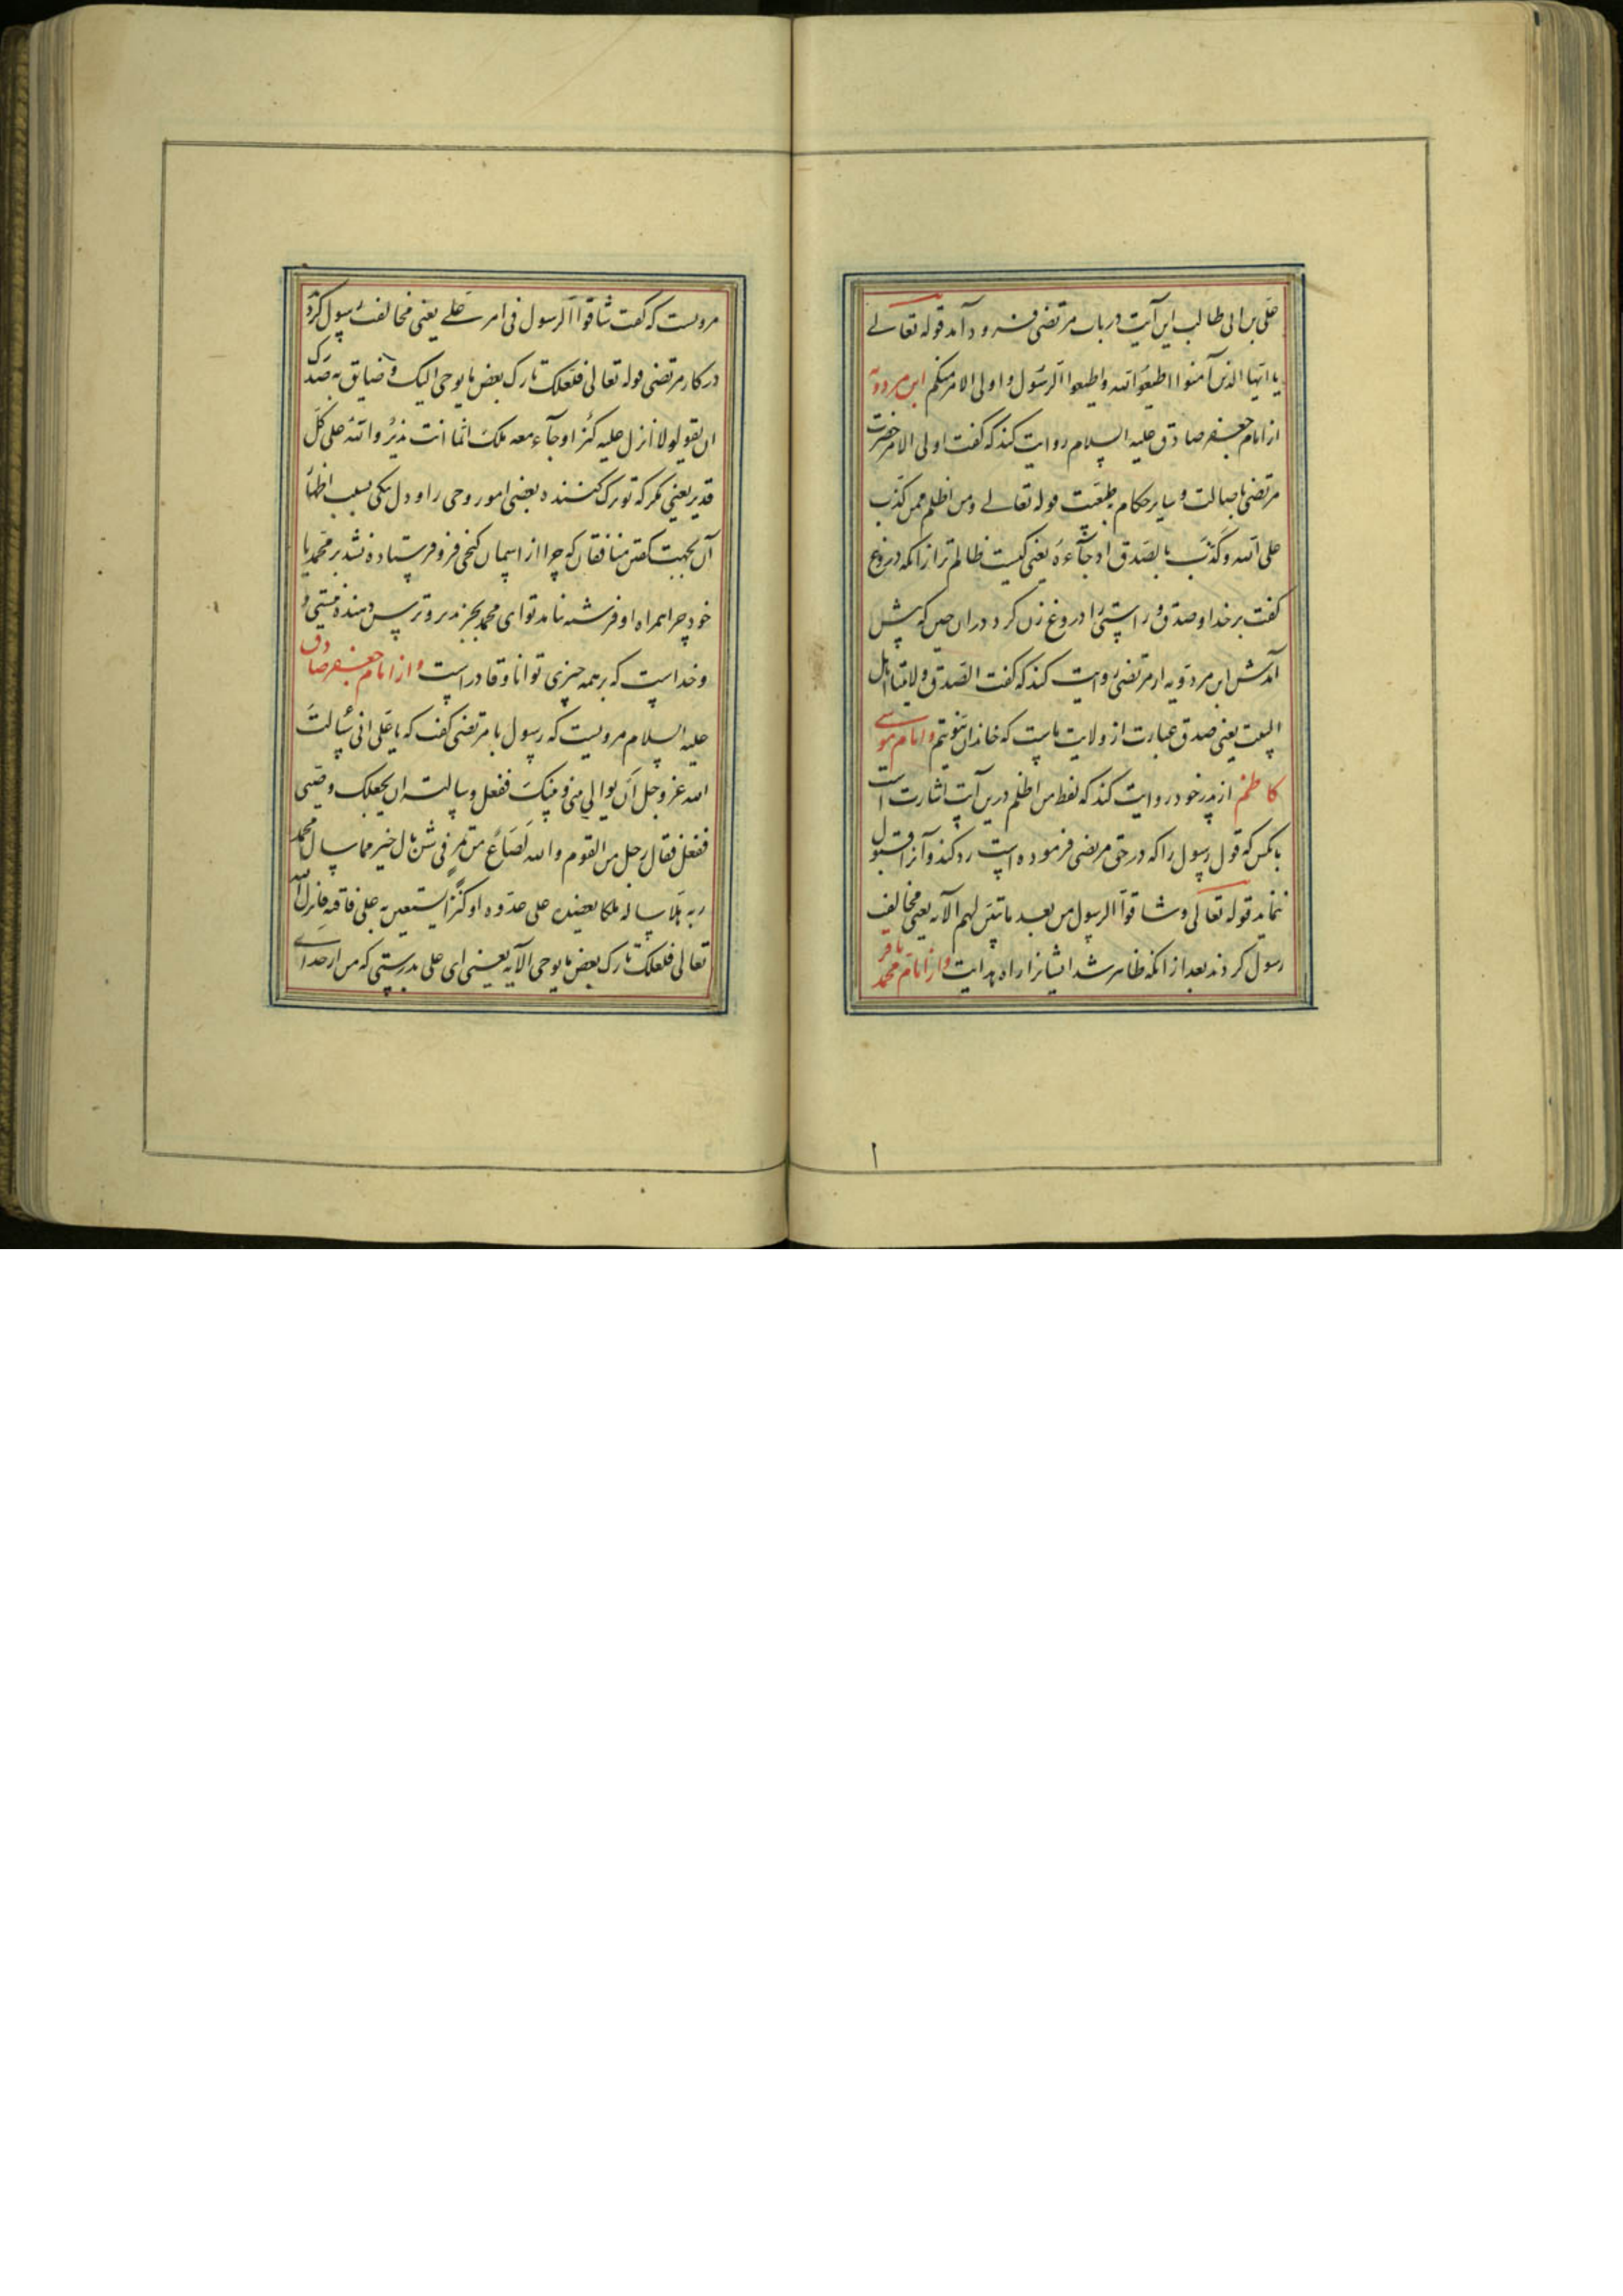 علی بن ابی طالب این آیت در باب مرتضی فرود آمد قوله تعالی
یا ایها الذین آمنوا اطیعوا الله و اطیعوا الرسول و اولی الامر منکم ابن مردویه
از امام جعفر صادق علیه السلام روایت کند که گفت اولی الامر حضرت
مرتضی باصالت و سایر حکام بطبعیت قوله تعالی و من اظلم ممن کذب
علی الله و کذب بالصدق اذ جآءه یعنی کیست ظالم تر از انکه دروغ
گفت بر خدا و صدق و راستی را دروغ زن کرد در ان حین که پیش
آمدش ابن مردویه از مرتضی روایت کند که گفت الصدق ولایتنا اهل
البیت یعنی صدق عبارت از ولایت ماست که خاندان نبوتیم و امام موسی
کاظم از پدر خود روایت کند که لفظ من اظلم درین آیت اشارت است
بانکس که قول رسول را که در حق مرتضی فرموده است رد کند و آنرا قبول
ننماید قوله تعالی و شاقوا الرسول من بعد ما تبین لهم الآیه یعنی مخالف
رسول کردند بعد از انکه ظاهر شد ایشانرا راه هدایت و از امام محمد باقر
۱
مرویست که گفت شاقوا الرسول فی امر علی یعنی مخالفت رسول کردند
در کار مرتضی قوله تعالی فلعلک تارک بعض ما یوحی الیک و ضایق به صدرک
ان یقولو لولا انزل علیه کنز او جآء معه ملک انما انت نذیر و الله علی کل
قدیر یعنی مگر که تو ترک کننده بعضی امور وحی را و دل تنگی بسبب اظهار
آن بجهت گفتن منافقان که چرا از اسمان گنجی فرو فرستاده نشد بر محمد یا
خود چرا همراه او فرشته نامد تو ای محمد بجز نذیر و ترس دهنده نیستی و
و خداست که بر همه چیزی توانا و قادر است و از امام جعفر صادق
علیه السلام مرویست که رسول با مرتضی گفت که یا علی انی سالت
الله عز و جل ان یوالی بینی و بینک ففعل و سالته ان یجعلک وصیی
ففعل فقال رجل من القوم و الله لصاع من تمر فی شن بال خیر مما سال محمد
ربه هلا ساله ملکا یعضده علی عدوه او کنزا یستعین به علی فاقته فانزل الله
تعالی فلعلک تارک بعض ما یوحی الآیه یعنی ای علی بدرستی که من از خدای